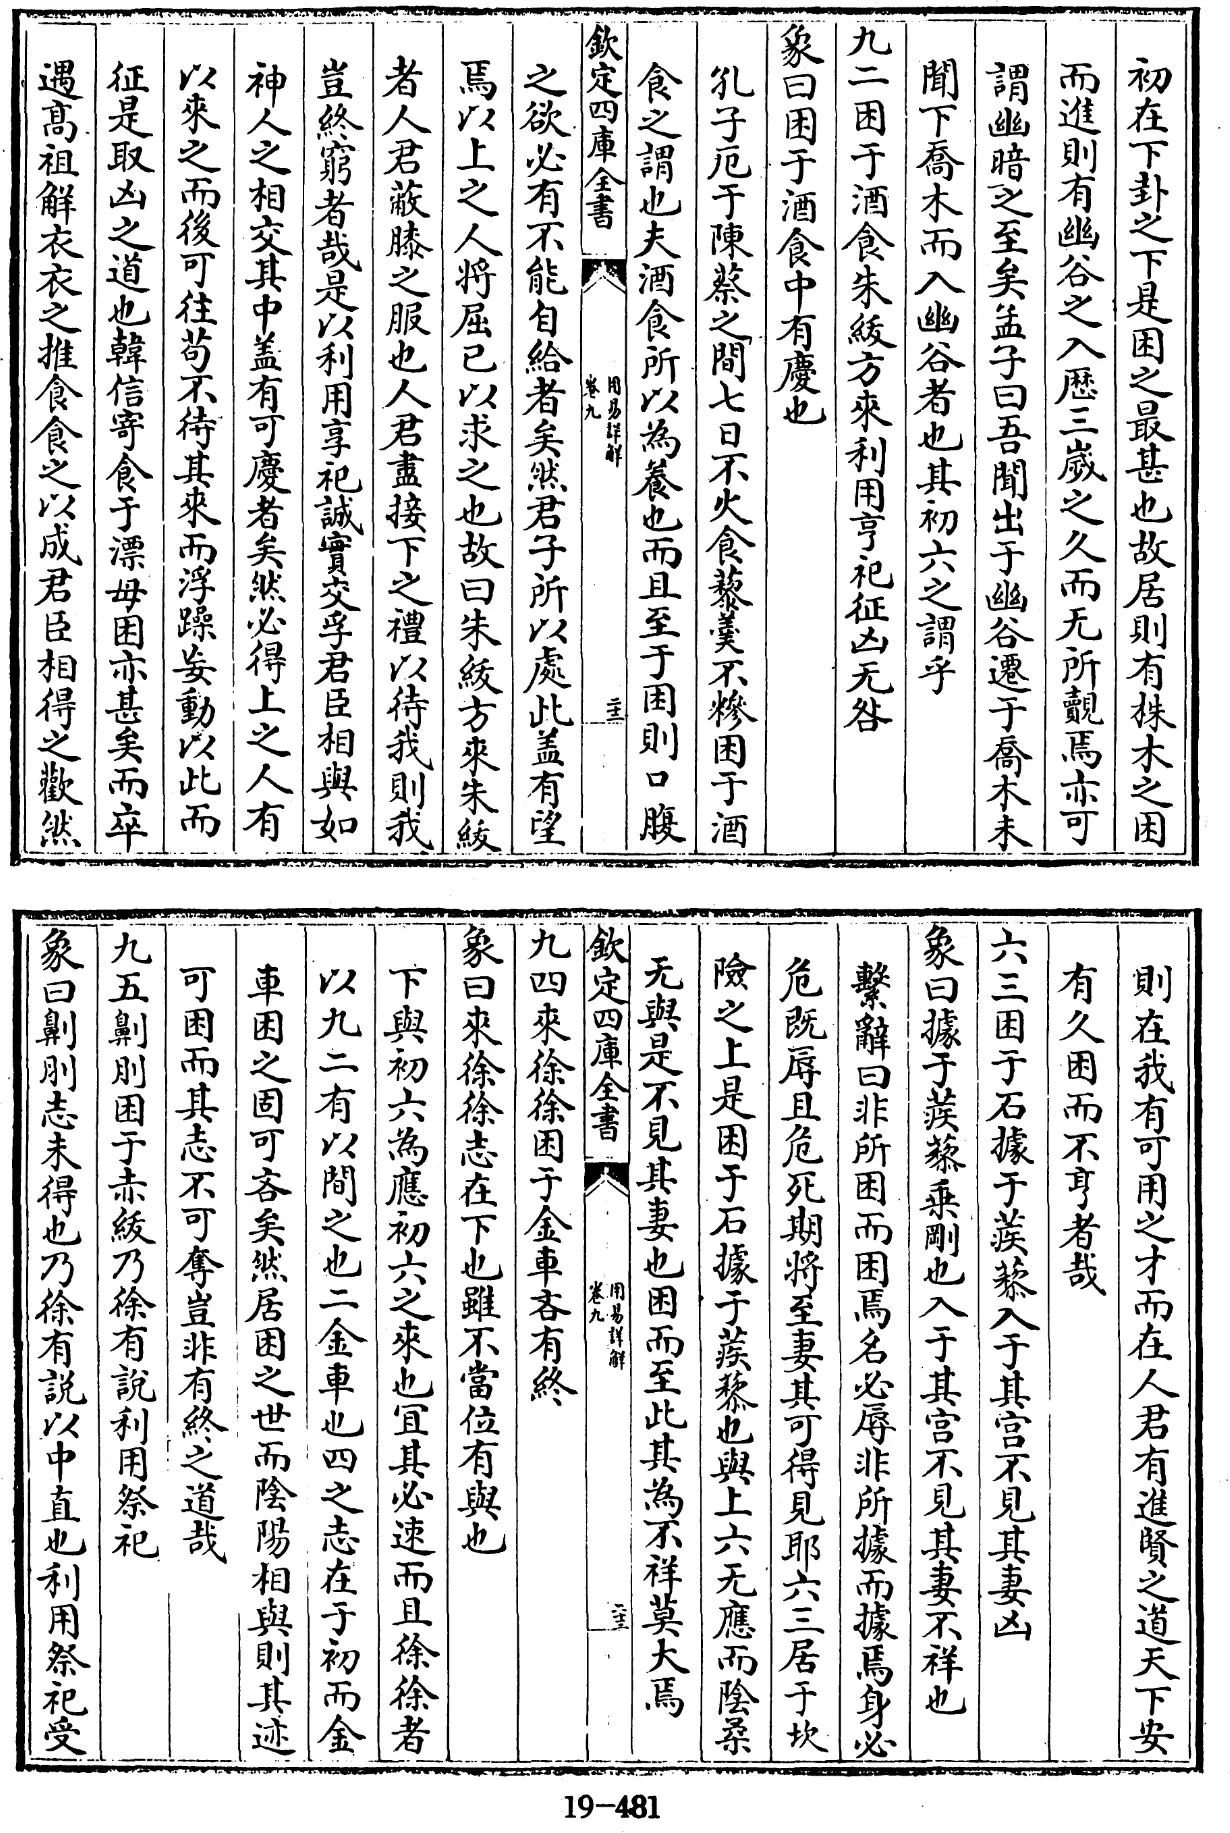 初在下卦之下是困之最甚也故居則有株木之困
而進則有幽谷之入歴三嵗之久而无所覿焉亦可
謂幽暗之至矣孟子曰吾聞出于幽谷遷于喬木未
聞下喬木而入幽谷者也其初六之謂乎
九二困于酒食朱紱方來利用亨祀征凶无咎
象曰困于酒食中有慶也
孔子厄于陳蔡之間七日不火食藜羮不糝困于酒
食之謂也夫酒食所以為養也而且至于困則口腹
欽定四庫全書
用易詳解
卷九
二十二
之欲必有不能自給者矣然君子所以處此盖有望
焉以上之人将屈已以求之也故曰朱紱方來朱紱
者人君蔽膝之服也人君盡接下之禮以待我則我
豈終窮者哉是以利用享祀誠實交孚君臣相與如
神人之相交其中盖有可慶者矣然必得上之人有
以來之而後可往苟不待其來而浮躁妄動以此而
征是取凶之道也韓信寄食于漂母困亦甚矣而卒
遇髙祖解衣衣之推食食之以成君臣相得之歡然
則在我有可用之才而在人君有進賢之道天下安
有久困而不亨者哉
六三困于石據于蒺藜入于其宫不見其妻凶
象曰據于蒺藜乗剛也入于其宫不見其妻不祥也
繫辭曰非所困而困焉名必辱非所據而據焉身必
危既辱且危死期將至妻其可得見耶六三居于坎
險之上是困于石據于蒺藜也與上六无應而陰柔
无與是不見其妻也困而至此其為不祥莫大焉
欽定四庫全書
用易詳解
卷九
二十三
九四來徐徐困于金車吝有終
象曰來徐徐志在下也雖不當位有與也
下與初六為應初六之來也宜其必速而且徐徐者
以九二有以間之也二金車也四之志在于初而金
車困之固可吝矣然居困之世而陰陽相與則其迹
可困而其志不可奪豈非有終之道哉
九五劓刖困于赤紱乃徐有説利用祭祀
象曰劓刖志未得也乃徐有説以中直也利用祭祀受
19-481